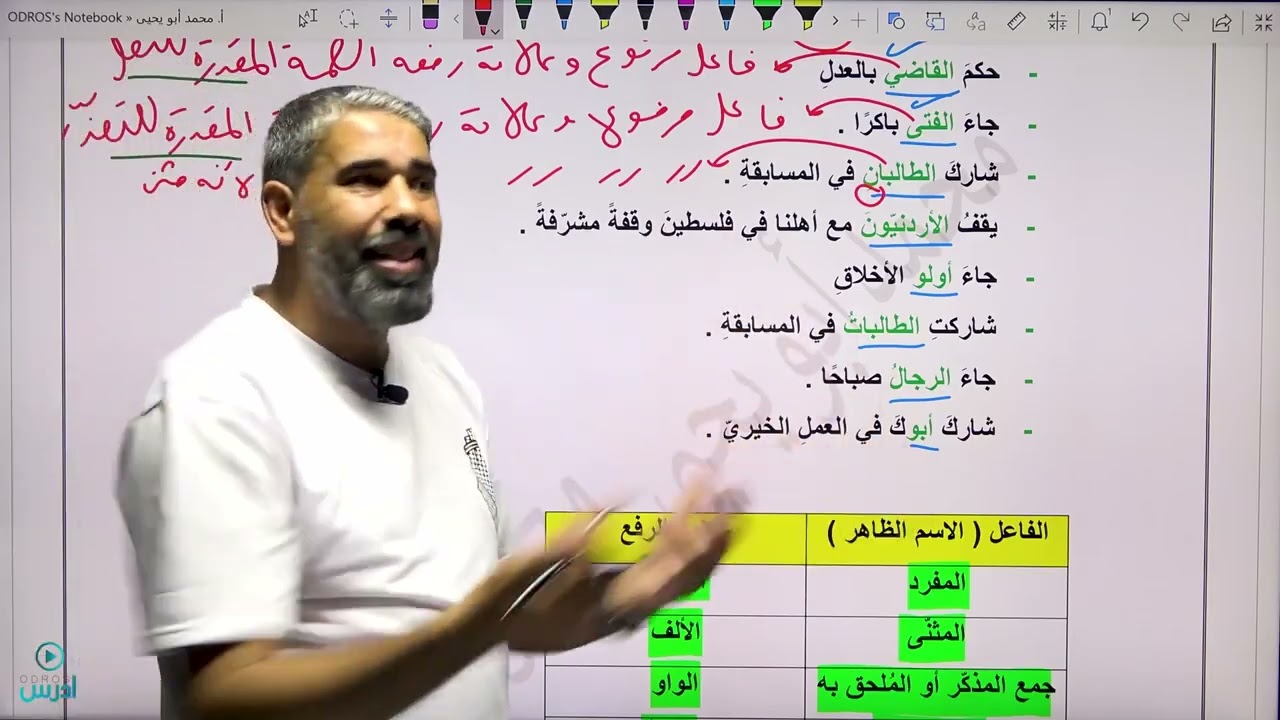 ODROS's Notebook » أ. محمد أبو يحيى
فاعل مرفوع وعلامة رفعه الضمة المقدرة للثقل
- حكمَ القاضي بالعدلِ
فاعل مرفوع وعلامة المقدرة للتعذّر
- جاءَ الفتى باكرًا .
لأنه مثنى
- شاركَ الطالبانِ في المسابقةِ .
- يقفُ الأردنيّونَ مع أهلنا في فلسطينَ وقفةً مشرّفةً .
- جاءَ أولو الأخلاقِ
- شاركتِ الطالباتُ في المسابقةِ .
- جاءَ الرجالُ صباحًا .
- شاركَ أبوكَ في العملِ الخيريّ .
الفاعل ( الاسم الظاهر ) الرفع
المفرد
المثنّى الألف
جمع المذكّر أو المُلحق به الواو
ODROS
أدرس
محمد أبو يحيى